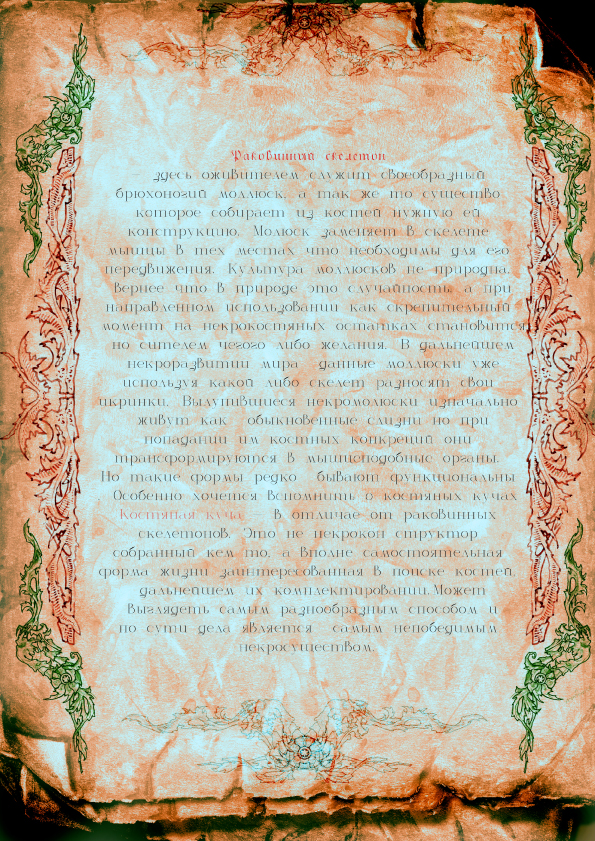 Раковинный скелетон
здесь оживителем служит своеобразный
брюхоногий моллюск, а так же то существо
которое собирает из костей нужную ей
конструкцию. Молюск заменяет в скелете
мышцы в тех местах что необходимы для его
передвижения. Культура моллюсков не природна.
Вернее что в природе это случайность, а при
направленном использовании как скрепительный
момент на некрокостяных остатках становится
но сителем чегого либо желания. В дальнейшем
некроразвитии мира данные моллюски уже
используя какой либо скелет разносят свои
икринки. Вылупившиеся некромолюски изначально
живут как обыкновенные слизни но при
попадании им костных конкреций они
трансформируются в мышцеподобные органы.
Но такие формы редко бывают функциональны
Особенно хочется вспомнить о костяных кучах
Костяная куча в отличае от раковинных
скелетонов. Это не некрокон структор
собранный кем то, а вполне самостоятельная
форма жизни заинтересованная в поиске костей,
дальнейшем их комплектировании.Может
выглядеть самым разнообразным способом и
по сути дела является самым непобедимым
некросуществом.